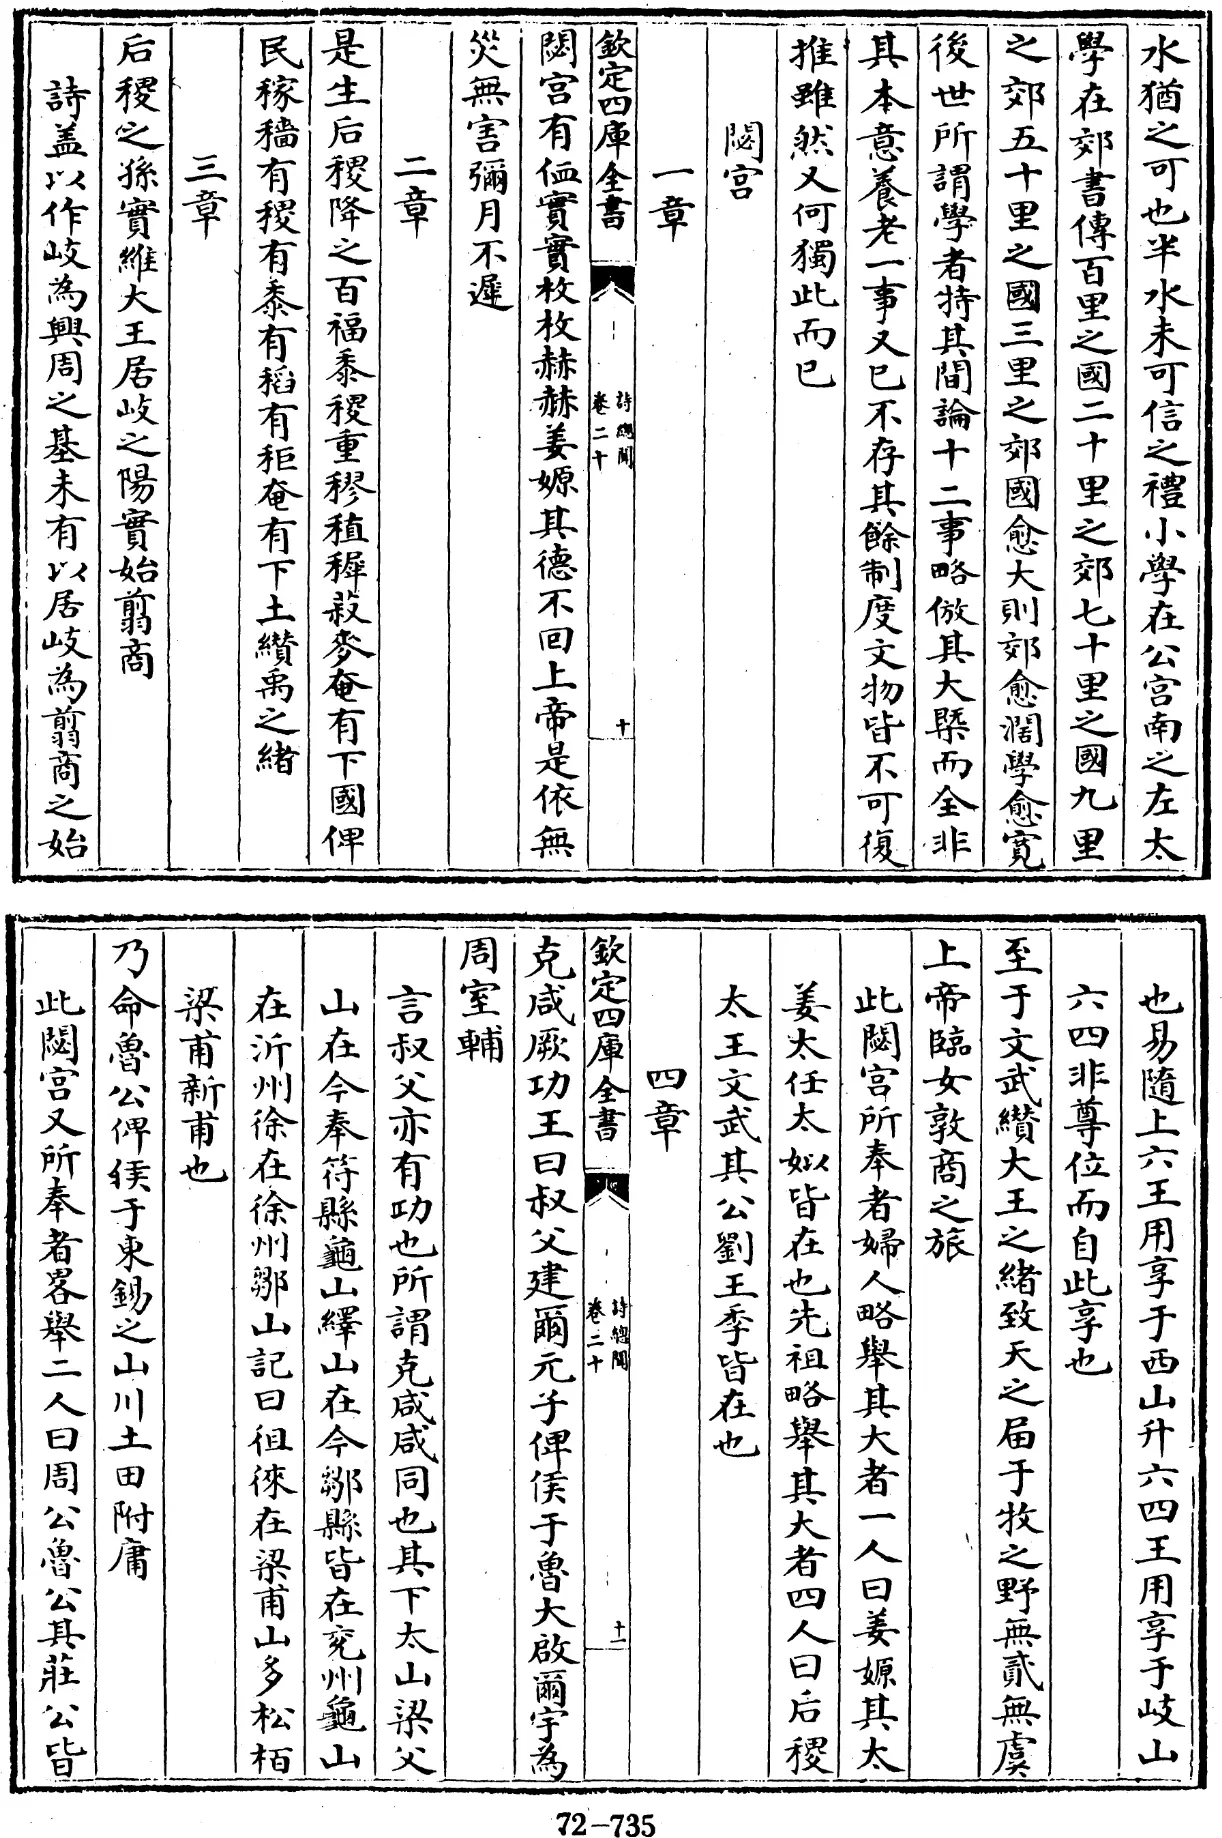 水猶之可也半水未可信之禮小學在公宫南之左太
學在郊書傳百里之國二十里之郊七十里之國九里
之郊五十里之國三里之郊國愈大則郊愈濶學愈寛
後世所謂學者特其間論十二事略倣其大槩而全非
其本意養老一事又已不存其餘制度文物皆不可復
推雖然又何獨此而已
閟宫
一章
欽定四庫全書
詩總聞
卷二十
十
閟宫有侐實實枚枚赫赫姜嫄其德不回上帝是依無
災無害彌月不遲
二章
是生后稷降之百福黍稷重穋稙穉菽麥奄有下國俾
民稼穡有稷有黍有稻有秬奄有下土纘禹之緒
三章
后稷之孫實維大王居岐之陽實始翦商
詩盖以作岐為興周之基未有以居岐為翦商之始
也易隨上六王用享于西山升六四王用享于岐山
六四非尊位而自此享也
至于文武纘大王之緒致天之届于牧之野無貳無虞
上帝臨女敦商之旅
此閟宫所奉者婦人略舉其大者一人曰姜嫄其太
姜太任太姒皆在也先祖略舉其大者四人曰后稷
太王文武其公劉王季皆在也
四章
欽定四庫全書
詩總聞
卷二十
十一
克咸厥功王曰叔父建爾元子俾侯于魯大啟爾宇為
周室輔
言叔父亦有功也所謂克咸咸同也其下太山梁父
山在今奉符縣龜山繹山在今鄒縣皆在兖州龜山
在沂州徐在徐州鄒山記曰徂徠在梁甫山多松栢
梁甫新甫也
乃命魯公俾侯于東錫之山川土田附庸
此閟宫又所奉者畧舉二人曰周公魯公其莊公皆
72-735